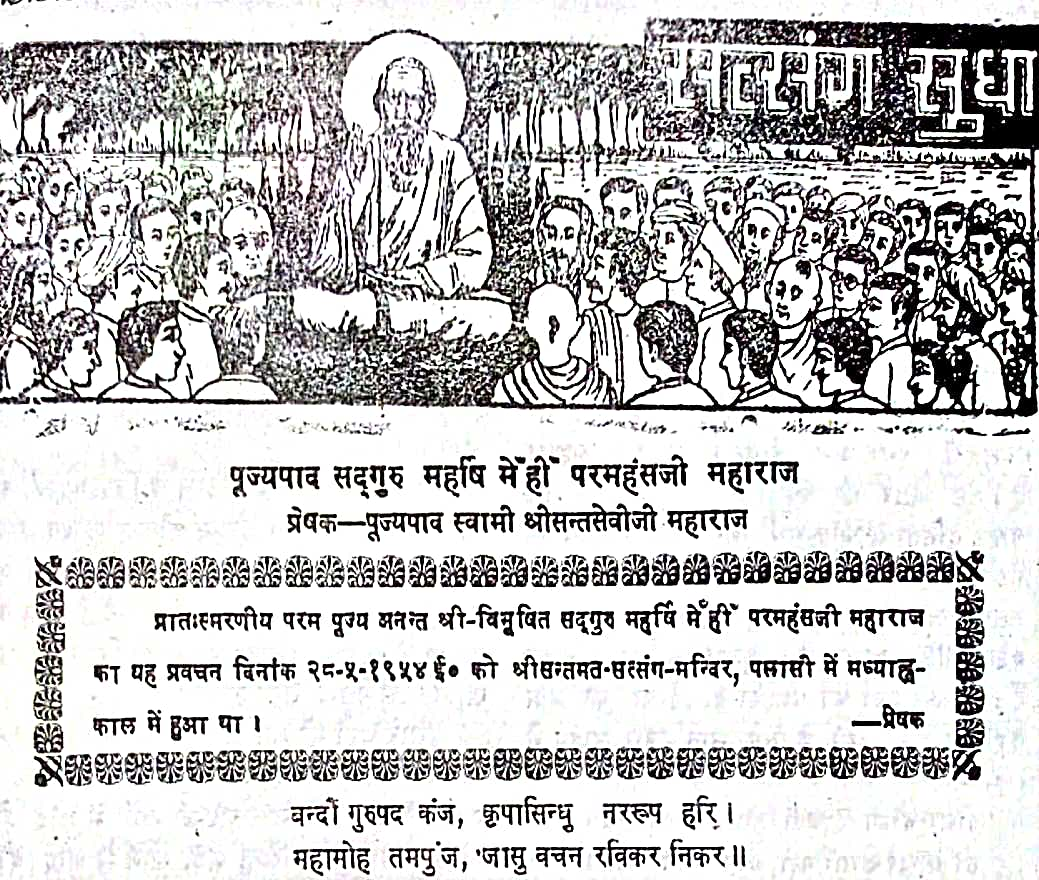 सत्संग सुधा
पूज्यपाद सद्गुरु महर्षि मेँहीँ परमहंसजी महाराज
प्रेषक—पूज्यपाद स्वामी श्रीसन्तसेवीजी महाराज
प्रातःस्मरणीय परम पूज्य अनन्त श्री-विभूषित सद्गुरु महर्षि मेँहीँ परमहंसजी महाराज
का यह प्रवचन दिनांक २८-५-१९५४ ई० को श्रीसन्तमत-सत्संग-मन्दिर, पलासी में मध्याह्न-
काल में हुआ था ।
—प्रेषक
वन्दौं गुरुपद कंज, कृपासिन्धु नररूप हरि ।
महामोह तमपुंज, जासु वचन रविकर निकर ॥